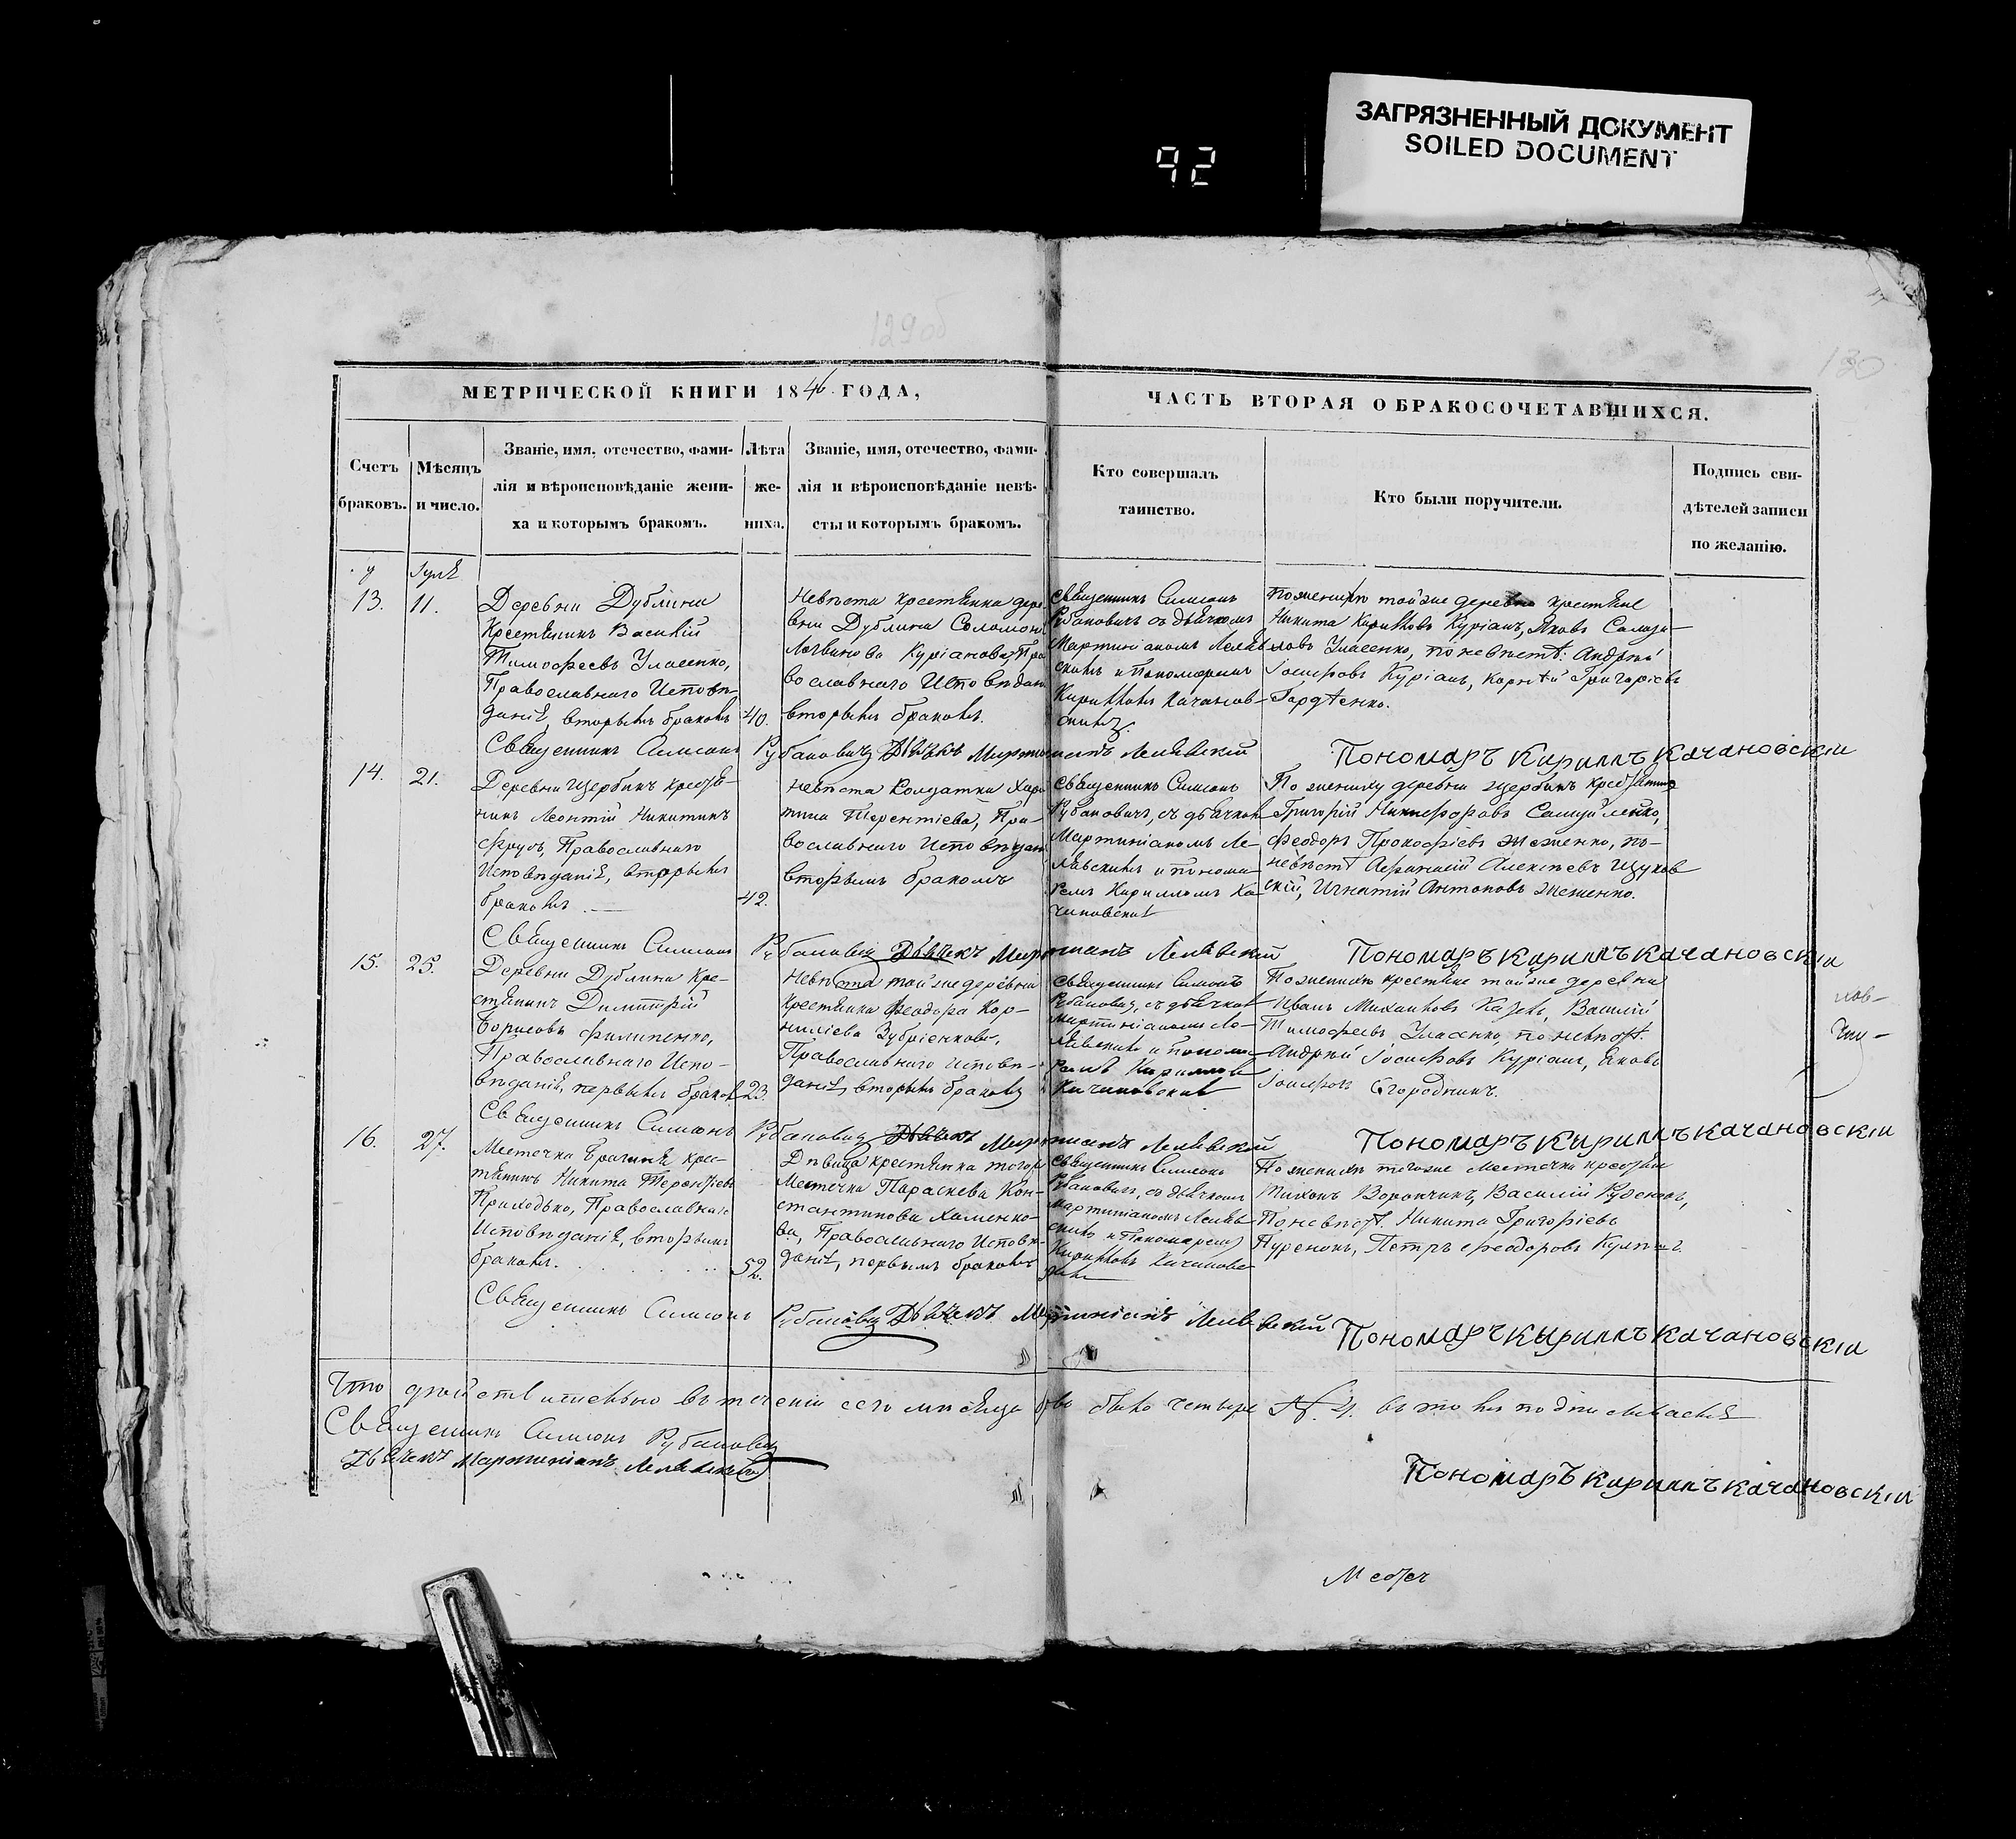 ЗАГРЯЗНЕННЫЙ ДОКУМЕНТ
SOILED DOCUMENT
92
129об
130
МЕТРИЧЕСКОЙ КНИГИ 1846 ГОДА,
ЧАСТЬ ВТОРАЯ О БРАКОСОЧЕТАВШИХСЯ.
Счетъ
браковъ.
Мѣсяцъ
и число.
Званіе, имя, отечество, фами-
лія и вѣроисповѣданіе жени-
ха и которымъ бракомъ.
Лѣта
же-
ниха.
Званіе, имя, отечество, фами-
лія и вѣроисповѣданіе невѣ-
сты и которымъ бракомъ.
Кто совершалъ
таинство.
Кто были поручители.
Подпись сви-
дѣтелей записи
по желанію.
13.
11.
Деревни Дублина
Крестьянинъ Василій
Тимофеевъ Уласенко,
Православнаго Исповѣ-
данія, вторымъ бракомъ
40.
Невѣста крестьянка дере-
вни Дублина Соломони
Логвинова Куріанова, Пра
вославнаго Исповѣдан
вторымъ бракомъ.
Священникъ Симеонъ
Рубановичъ съ дьячкомъ
Мартиніаномъ Леляв
скимъ и Пономаремъ
Кирилломъ Качанов-
скимъ.
По женихѣ тойже деревни крестьяне
Никита Кириловъ Куріанъ, Яковъ
Уласенко, по невѣстѣ: Андрѣй
Іосифовъ Куріанъ, Корнѣй Григоріевъ
Гордѣенко.
Священникъ Симеонъ Рубановичъ Дьячекъ Мартиніанъ Лелявскій
Пономаръ Кириллъ Качановскіи
14.
21.
Деревни Щербинъ крестья-
нинъ Леонтій Никитинъ
Православнаго
Исповѣданія, вторымъ
бракомъ
42.
Невѣста Солдатка Хари
тина Терентіева, Пра-
вославнаго Исповѣдан
вторымъ бракомъ
Священникъ Симеонъ
Рубановичъ, съ дьячком
Мартиніаномъ Ле-
лявскимъ и понома-
ремъ Кирилломъ Ка-
чановским
По жениху деревни Щербинъ крестьяне
Григорій Никифоровъ Самуйленко,
Феодоръ Прокофіевъ Жеженко, по-
невѣстѣ Афанасій Алексѣевъ Щуков
скій, Игнатій Антоновъ Жеженко.
Священникъ Симеонъ Рубановичъ Дьячекъ Мартиніанъ Лелявскій
Пономаръ Кириллъ Качановскіи
15.
25.
Деревни Дублина Кре-
стьянинъ Димитрій
Борисовъ Филипенко,
Православнаго Испо-
вѣданія, первымъ браком
23.
Невѣста тойже деревни
Крестьянка Феодора Кор-
ниліева Зубріенкова,
Православнаго Исповѣ-
данія, вторымъ бракомъ
Священникъ Симеонъ
Рубановичъ, съ дьячком
Мартиніаномъ Ле-
лявскимъ и Понома-
ремъ Кирилломъ
Качановским
По женихѣ крестьяне тойже деревни
Иванъ Михаиловъ Василій
Тимофеевъ Уласенко, по невѣстѣ.
Андрѣй Іосифовъ Куріанъ, Яковъ
Іосифовъ Огородникъ.
Священникъ Симеонъ Рубановичъ Дьячекъ Мартиніанъ Лелявскій
Пономаръ Кириллъ Качановскіи
16.
27.
Местечка Брагиня крес-
тьянинъ Никита Терентіевъ
Приходько, Православнаго
Исповѣданія, вторымъ
бракомъ.
52.
Дѣвица крестьянка тогоже
Местечка Параскева Кон-
стантинова Хаменко-
ва, Православнаго Исповѣ-
данія, первымъ бракомъ
Священникъ Симеонъ
Рубановичъ, съ дьячкомъ
Мартиніаномъ Леляв
скимъ и Пономаремъ
Кирилломъ Качановс
кимъ
По женихѣ тогоже местечка крестьяне
Тихонъ Ворончикъ, Василій
По невѣстѣ. Никита Григоріевъ
Петръ Феодоровъ
Священникъ Симеонъ Рубановичъ Дьячекъ Мартиніанъ Лелявскій
Пономаръ Кириллъ Качановскіи
Что дѣйствительно въ теченіи сего мѣсяца было четыре №. 4. въ томъ подписываемся
Священникъ Симеонъ Рубановичъ
Дьячекъ Мартиніанъ Лелявскій
Пономаръ Кириллъ Качановскіи